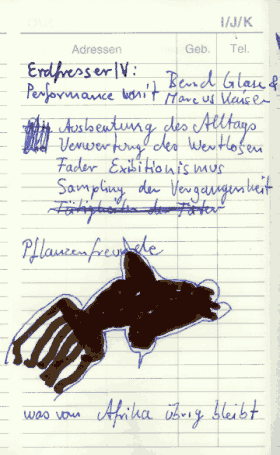 I/J/K
Adressen Geb. Tel.
Erdfresser IV:
Performance mit Bernd Glase &
Marcus Kaiser
Ausbeutung des Alltags
Verwertung des Wertlosen
Fader Exibitionismus
Sampling der Vergangenheit
Tätigkeiten der Täter
Pflanzenfreunde
was von Afrika übrig bleibt